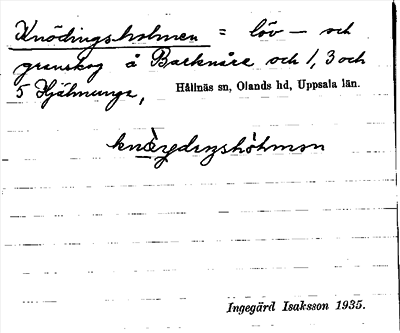 Knödingsholmen = löv – och
granskog å Barknåre och 1, 3 och
5 Hjälmunge,
Hållnäs sn, Olands hd, Uppsala län.
Ingegärd Isaksson 1935.